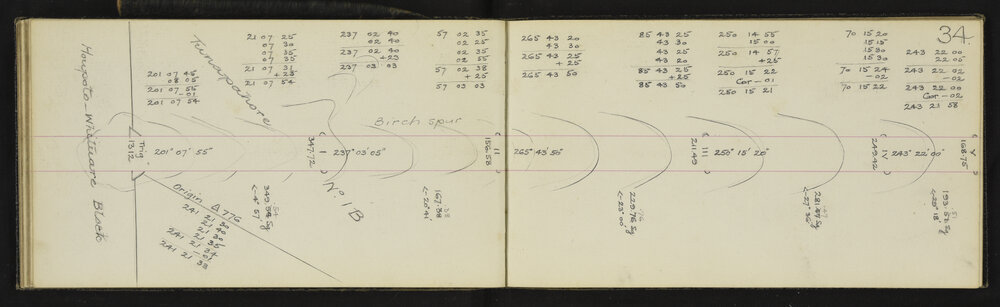 34
21 07 25
07 30
07 35
07 35
21 07 31
+ 23
21 07 54
237 02 40
02 40
237 02 40
+ 23
237 03 03
57 02 35
02 25
02 35
02 55
57 02 38
+ 25
57 03 03
265 43 20
43 30
265 43 25
+ 25
265 43 50
85 43 25
43 30
43 25
43 20
85 43 25
+ 25
85 43 50
250 14 55
15 00
14 57
+ 25
250 15 22
Cor - 01
250 15 21
70 15 20
15 15
15 30
15 30
70 15 24
- 02
70 15 22
243 22 00
22 05
243 22 02
- 02
243 22 00
Cor - 02
243 21 58
201 07 45
08 05
201 07 55
- 01
201 07 54
Birch spur
Trig
1312
201° 07' 55"
347.72
I
237° 03' 05"
156.58
II
265° 43' 50"
211.49
III
250° 15' 20"
249.42
IV
243° 22' 00"
168.75
V
No. 1B
Origin Δ 776
241 21 30
21 40
21 30
21 35
241 21 34
- 01
241 21 33
<-4° 57'
167.38
<-20° 41'
229.76 Sg
<-23° 00'
<-27° 36'
<-20° 18'
Block